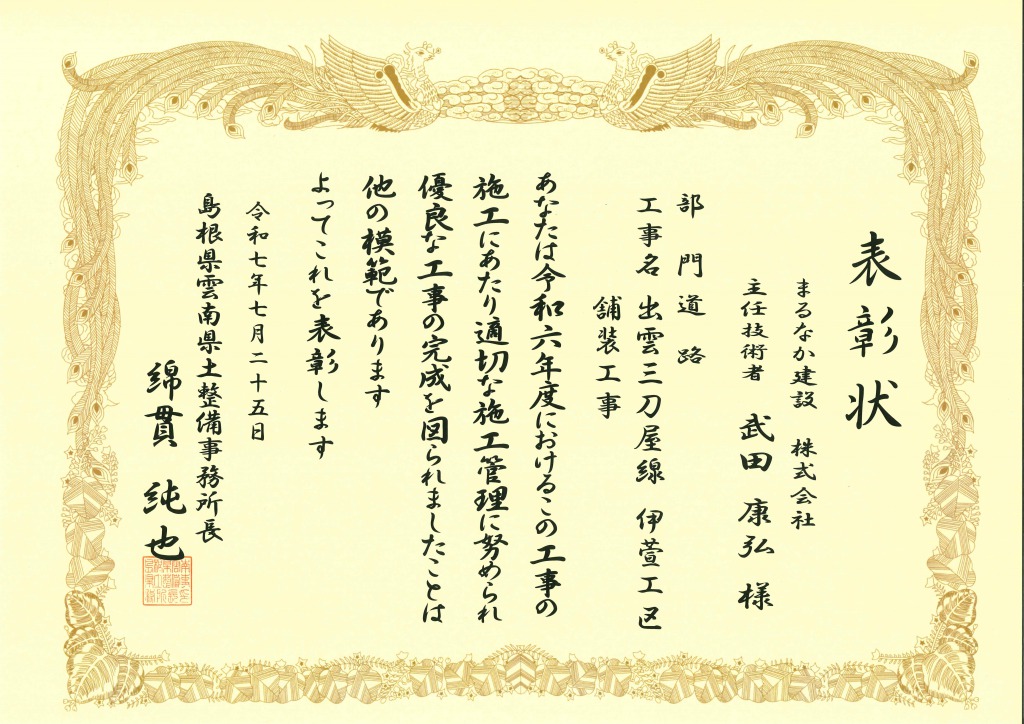 表彰状
まるなか建設 株式会社
主任技術者 武田 康弘 様
部門 道路
工事名 出雲三刀屋線 伊萱工区
舗装工事
あなたは令和六年度におけるこの工事の
施工にあたり適切な施工管理に努められ
優良な工事の完成を図られましたことは
他の模範であります
よってこれを表彰します
令和七年七月二十五日
島根県雲南県土整備事務所長
綿貫 純也